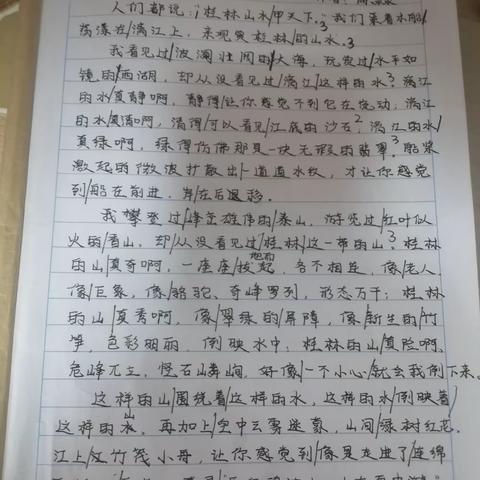 人们都说："桂林山水甲天下。"我们乘着木船
荡漾在漓江上，来观赏桂林的山水。
我看见过波澜壮阔的大海，玩赏过水平如
镜的西湖，却从没看见过漓江这样的水。漓江
的水真静啊，静得让你感觉不到它在流动；漓江
的水真清啊，清得可以看见江底的沙石；漓江的水
真绿啊，绿得仿佛那是一块无瑕的翡翠。船桨
激起的微波扩散出一道道水纹，才让你感觉
到船在前进，岸在后退移。
我攀登过峰峦雄伟的泰山，游览过红叶似
火的香山，却从没看见过桂林这一带的山。桂林
的山真奇啊，一座座拔地而起，各不相连，像老人，
像巨象，像骆驼，奇峰罗列，形态万千；桂林
的山真秀啊，像翠绿的屏障，像新生的竹
笋，色彩明丽，倒映水中；桂林的山真险啊，
危峰兀立，怪石嶙峋，好像一个小心就会我倒下来。
这样的山围绕着这样的水，这样的水倒映着
这样的山，再加上空中云雾迷蒙，山间绿树红花，
江上红竹筏小舟，让你感到像是走进了连绵